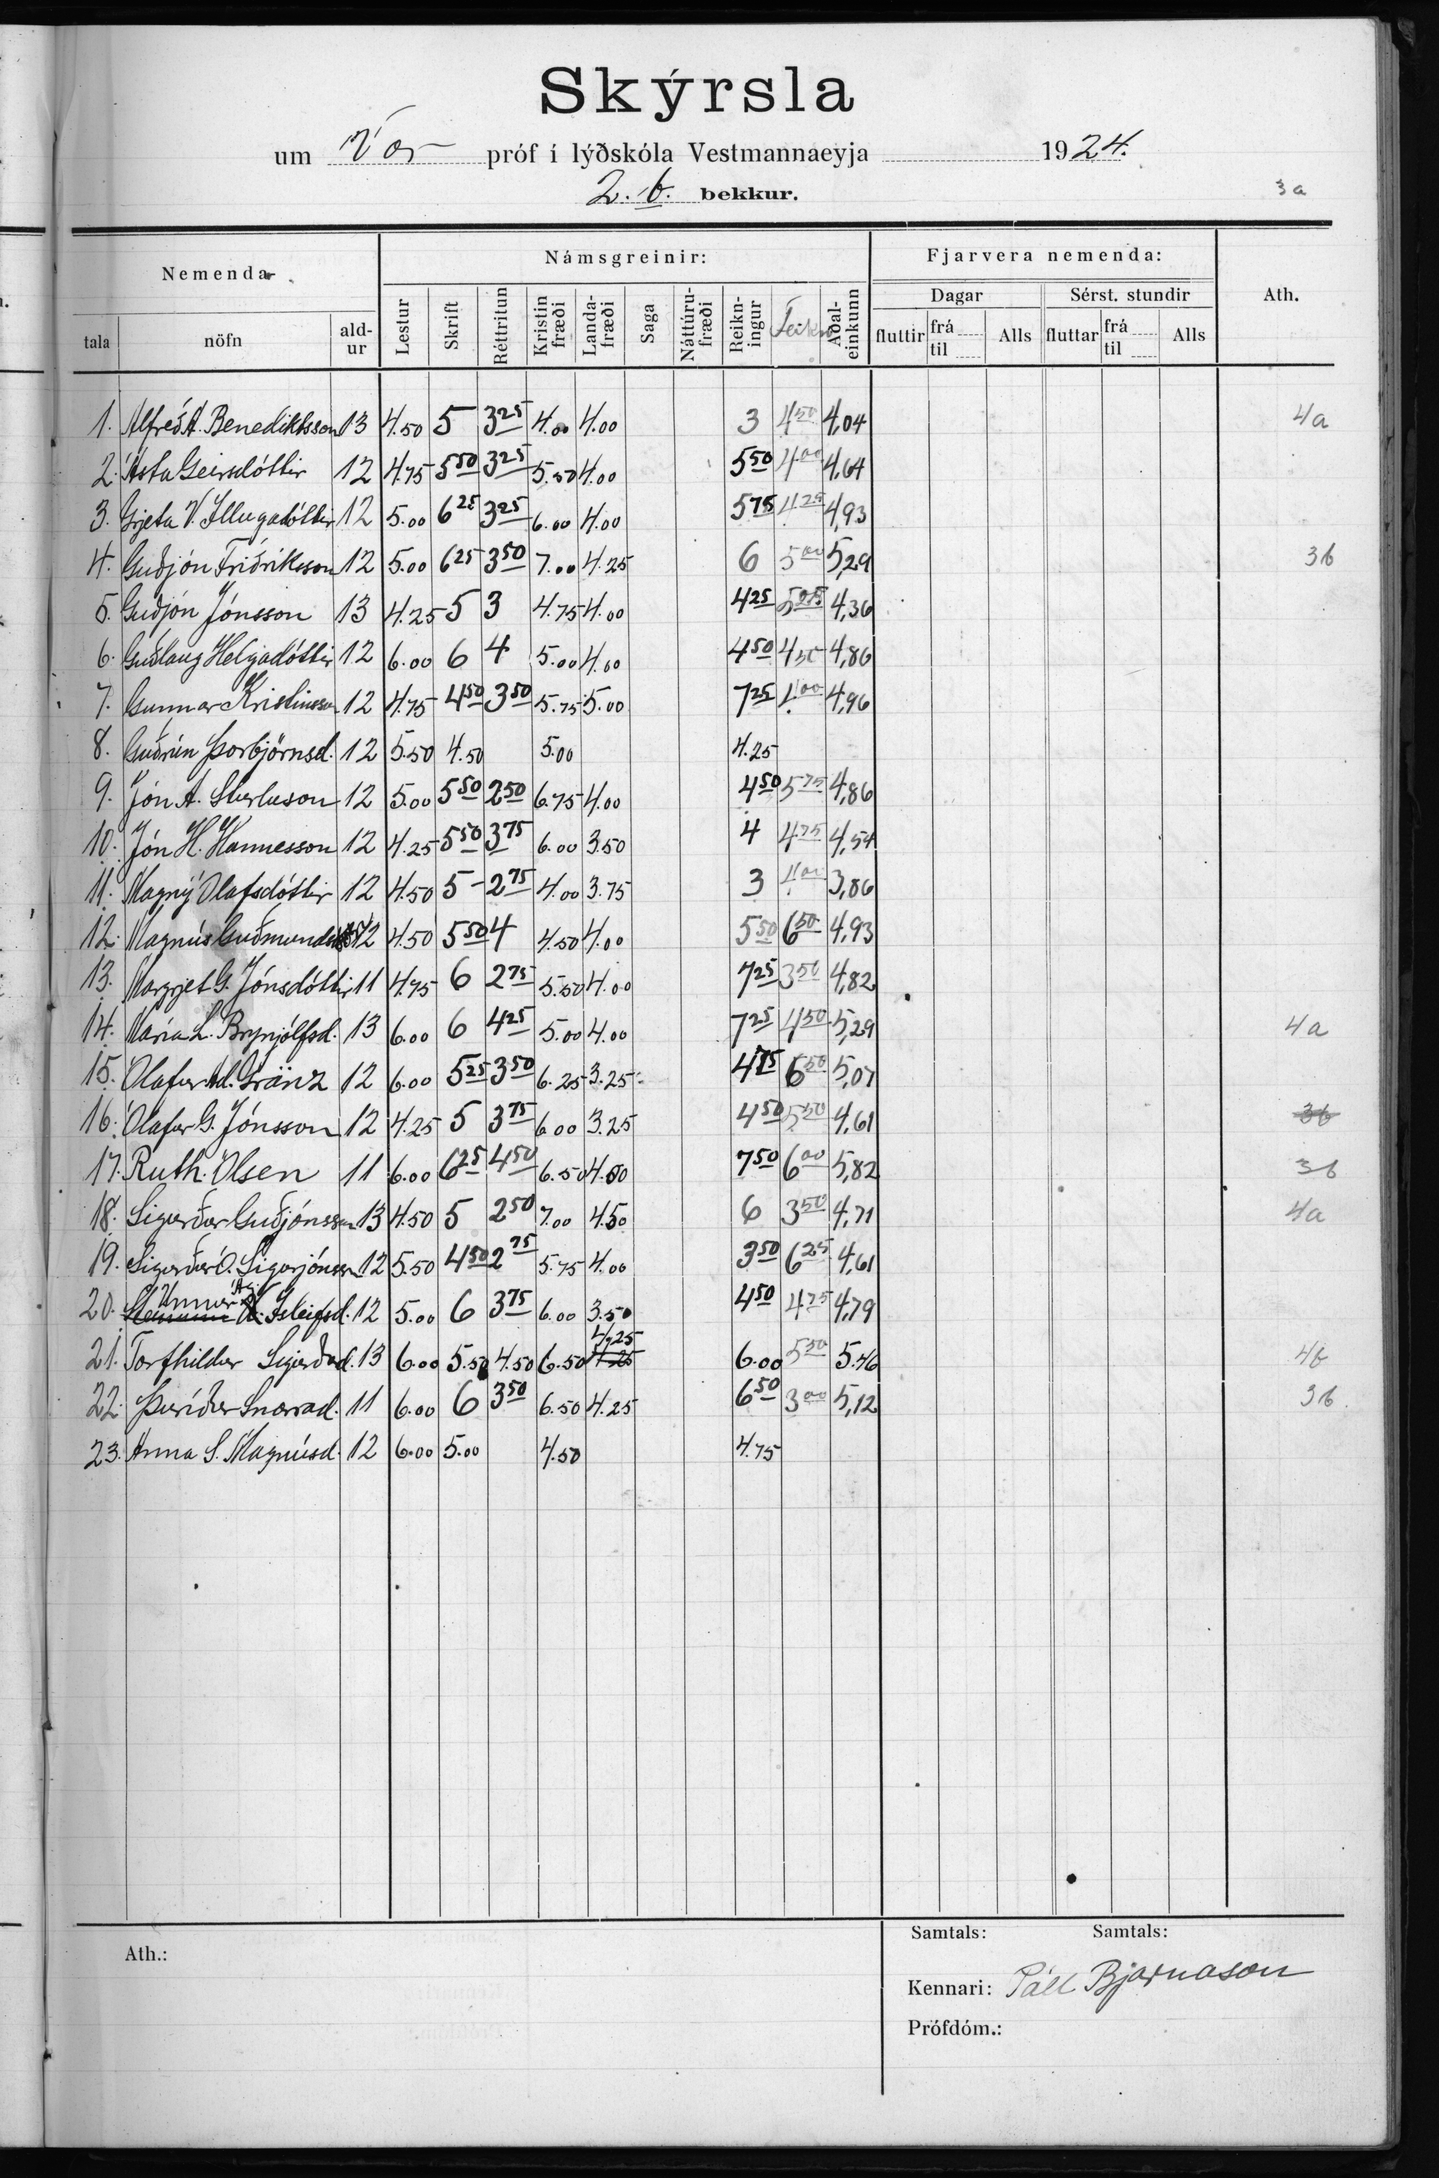 Skýrsla
um Vor próf í lýðskóla Vestmannaeyja 1924.
2. b. bekkur. 3a
Nemenda- Námsgreinir: Fjarvera nemenda: Ath.
Dagar Sérst. stundir
tala nöfn ald-ur Lestur Skrift Réttritun Kristin fræði Landa-fræði Saga Náttúru-fræði Reikn-ingur Teikn Aðal-einkunn fluttir frá til Alls fluttar frá til Alls
1. Alfreð A. Benediktsson 13 4.50 5 3 25 4.00 4.00 3 4 50 4,04 4a
2. Ásta Geirsdóttir 12 4.75 5 50 3 25 5.50 4.00 5 50 4 00 4,64
3. Grjeta V. Illugadóttir 12 5.00 6 25 3 25 6.00 4.00 5 75 4 25 4,93
4. Guðjón Friðriksson 12 5.00 6 25 3 50 7.00 4.25 6 5 00 5,29 3b
5. Guðjón Jónsson 13 4.25 5 3 4.75 4.00 4 25 5 25 4,36
6. Guðlaug Helgadóttir 12 6.00 6 4 5.00 4.00 4 50 4 50 4,86
7. Gunnar Kristinsson 12 4.75 4 50 3 50 5.75 5.00 7 25 4 00 4,96
8. Guðrún Þorbjörnsd. 12 5.50 4.50 5.00 4.25
9. Jón A. Sturluson 12 5.00 5 50 2 50 6.75 4.00 4 50 5 75 4,86
10. Jón H. Hannesson 12 4.25 5 50 3 75 6.00 3.50 4 4 75 4,54
11. Magný Olafsdóttir 12 4.50 5 - 2 75 4.00 3.75 3 4 00 3,86
12. Magnús Guðmundss 12 4.50 5 50 4 4.50 4.00 5 50 6 50 4,93
13. Margrjet G. Jónsdóttir 11 4.75 6 2 75 5.50 4.00 7 25 3 50 4,82
14. María L. Brynjólfsd. 13 6.00 6 4 25 5.00 4.00 7 25 4 50 5,29 4a
15. Olafur Ad. Gränz 12 6.00 5 25 3 50 6.25 3.25 4 75 6 50 5,07
16. Ólafur G. Jónsson 12 4.25 5 3 75 6.00 3.25 4 50 5 50 4,61 3b
17. Ruth Olsen 11 6.00 6 25 4 50 6.50 4.00 7 50 6 00 5,82 3b
18. Sigurður Guðjónsson 13 4.50 5 2 50 7.00 4.50 6 3 50 4,71 4a
19. Sigurður Ó. Sigurjónsson 12 5.50 4 50 2 75 5.75 4.00 3 50 6 25 4,61
20. Unnur Isleifsd. 12 5.00 6 3 75 6.00 3.50 4 50 4 75 4,79
21. Torfhildur Sigurðard. 13 6.00 5.50 4.50 6.50 4,25 6.00 5 50 5.46 4b
22. Þuríður Snorrad. 11 6.00 6 3 50 6.50 4.25 6 50 3 00 5,12 3b
23. Anna S. Magnúsd. 12 6.00 5.00 4.50 4.75
Ath.: Samtals: Samtals:
Kennari: Páll Bjarnason
Prófdóm.: